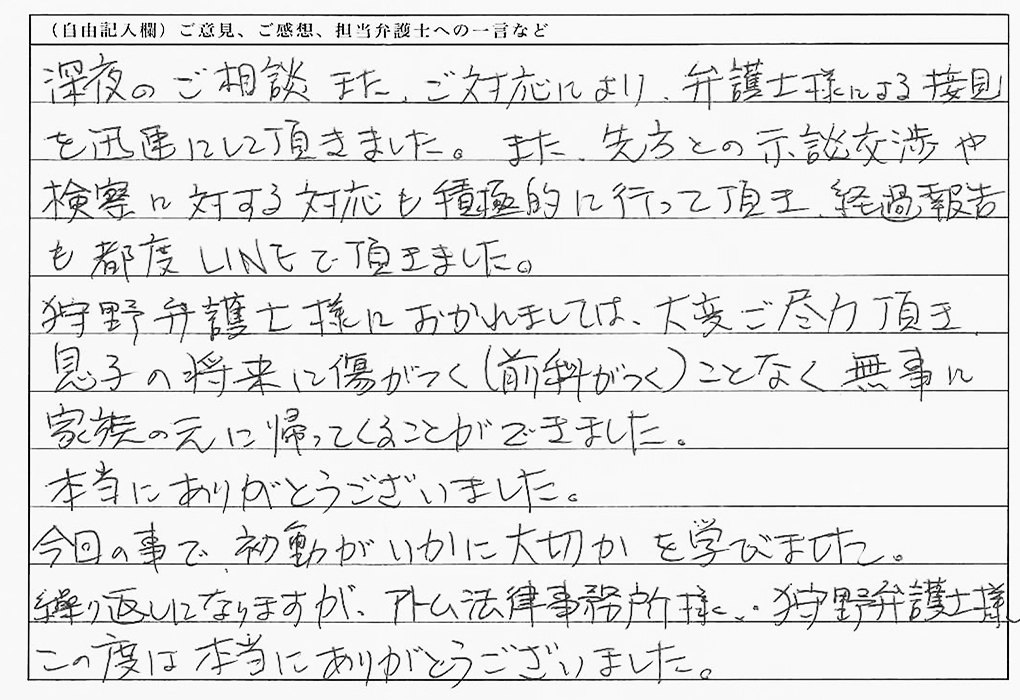 （自由記入欄）ご意見、ご感想、担当弁護士への一言など
深夜のご相談また、ご対応により、弁護士様による接見
を迅速にして頂きました。また、先方との示談交渉や
検察に対する対応も積極的に行って頂き、経過報告
も都度LINEで頂きました。
狩野弁護士様におかれましては、大変ご尽力頂き、
息子の将来に傷がつく(前科がつく)ことなく無事に
家族の元に帰ってくることができました。
本当にありがとうございました。
今回の事で、初動がいかに大切かを学びました。
繰り返しになりますが、アトム法律事務所様、・狩野弁護士様、
この度は本当にありがとうございました。